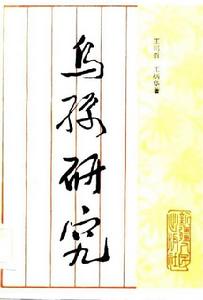 乌孫研究
王明哲 王炳华著
新疆人民出版社